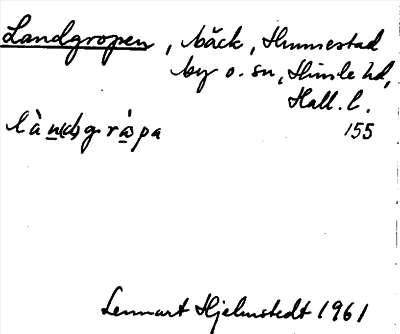 Landgropen, bäck, Hunnestad
by o. sn, Himle hd,
Hall. l.
làn(d)gråpa 155
Lennart Hjelmstedt 1961